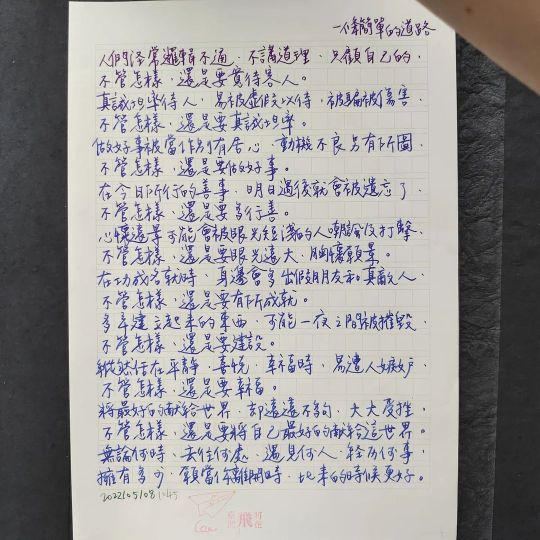 一條簡單的道路
人們經常邏輯不通，不講道理，只顧自己的，
不管怎樣，還是要寬待客人。
真誠坦率待人，易被虛假以待，被騙被傷害，
不管怎樣，還是要真誠坦率。
做好事被當作別有居心，動機不良另有所圖，
不管怎樣，還是要做好事。
在今日所行的善事，明日過後就會被遺忘了，
不管怎樣，還是要多行善。
心懷遠景可能會被眼光短淺的人嘲諷及打擊，
不管怎樣，還是要眼光遠大，胸懷願景。
在功成名就時，身邊會多出假朋友和真敵人，
不管怎樣，還是要有所成就。
多年建立起來的東西，可能一夜之間被摧毀，
不管怎樣，還是要建設。
縱然活在平靜，喜悅，幸福時，易遭人嫉妒，
不管怎樣，還是要幸福。
將最好的獻給世界，卻遠遠不夠，大大受挫，
不管怎樣，還是要將自己最好的獻給這世界。
無論何時，去往何處，遇見何人，經歷何事，
擁有多少，願當你離開時，比來的時候更好。
2022/05/08 1045
飛